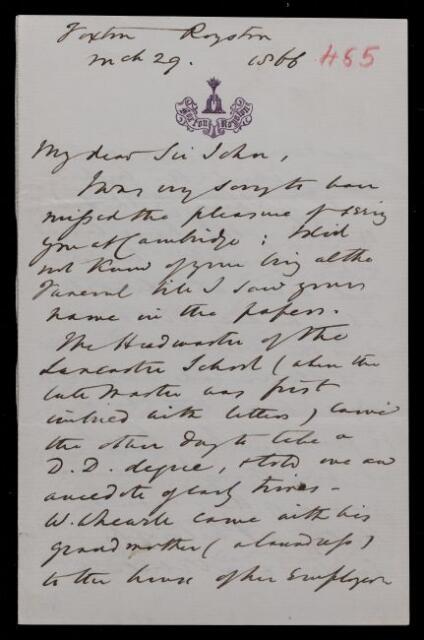 Foxton Royston
Mch 29. 1866 465
Foxton Royston
My dear Sir John,
I was very sorry to have
missed the pleasure of seeing
you at Cambridge; I did
not know of your being at the
Funeral till I saw your
name in the papers.
The Headmaster of the
Lancaster School (when the
late Master was first
imbued with letters) came
the other day to take a
D.D. degree, & told me an
anecdote of early times –
W. Whewell came with his
grandmother (a laundress)
to the house of her Employer